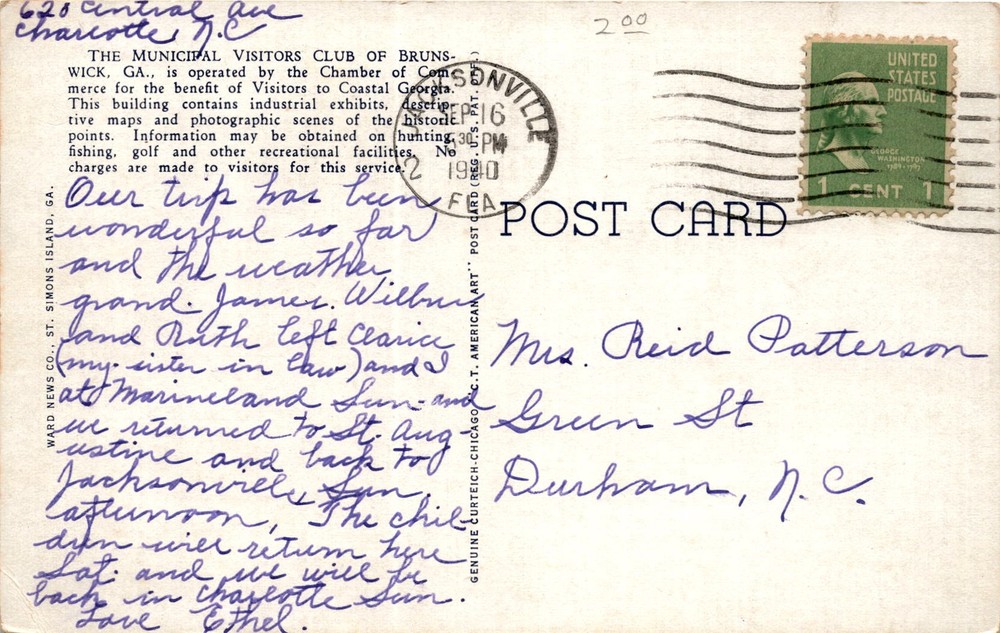 620 Central Ave
Charlotte, N.C
2 00
THE MUNICIPAL VISITORS CLUB OF BRUNS-
WICK, GA., is operated by the Chamber of Com-
merce for the benefit of Visitors to Coastal Georgia.
This building contains industrial exhibits, descrip-
tive maps and photographic scenes of the historic
points. Information may be obtained on hunting,
fishing, golf and other recreational facilities. No
charges are made to visitors for this service.
JACKSONVILLE
SEP 16
5 30 PM
1940
2
FLA.
UNITED
STATES
POSTAGE
GEORGE
WASHINGTON
1789-1797
1 CENT 1
POST CARD
Our trip has been
wonderful so far
and the weather
grand. James. Wilbur
and Ruth left Clarice
(my sister in law) and I
at Marineland Sun. and
we returned to St. Aug-
ustine and back to
Jacksonville, Sun.
afternoon, The chil-
dren will return here
Sat. and we will be
back in Charlotte Sun.
Love Ethel.
Mrs. Reid Patterson
Green St
Durham, N.C.
WARD NEWS CO., ST. SIMONS ISLAND, GA.
GENUINE CURTEICH-CHICAGO "C.T. AMERICAN ART" POST CARD (REG. U.S. PAT. OFF.)